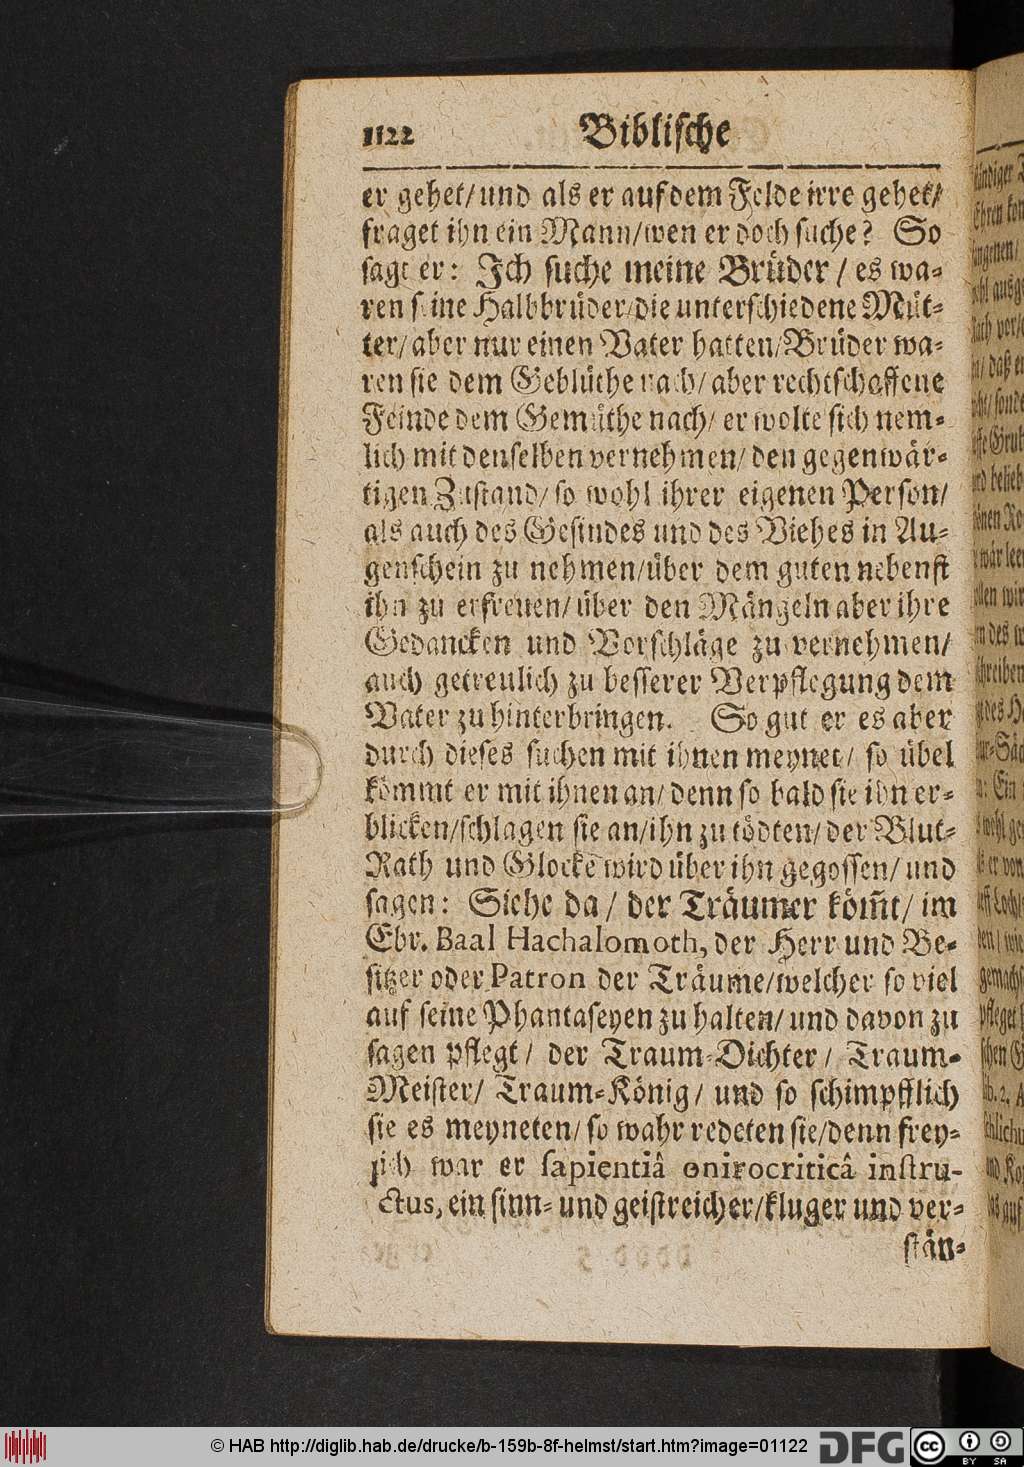 1122 Biblische
er gehet/und als er auf dem Felde irre gehet/
fraget ihn ein Mann/wen er doch suche? So
sagt er: Ich suche meine Brüder / es wa-
ren seine Halbbrüder/die unterschiedene Müt-
ter/ aber nur einen Vater hatten/Brüder wa-
ren sie dem Geblüthe nach/ aber rechtschaffene
Feinde dem Gemüthe nach/ er wolte sich nem-
lich mit denselben vernehmen/ den gegenwär-
tigen Zustand/ so wohl ihrer eigenen Person/
als auch des Gesindes und des Viehes in Au-
genschein zu nehmen/über dem guten nebenst
ihn zu erfreuen/ über den Mängeln aber ihre
Gedancken und Vorschläge zu vernehmen/
auch getreulich zu besserer Verpflegung dem
Vater zu hinterbringen. So gut er es aber
durch dieses suchen mit ihnen meynet/ so übel
kömmt er mit ihnen an/ denn so bald sie ihn er-
blicken/schlagen sie an/ihn zu tödten/ der Blut-
Rath und Glocke wird über ihn gegossen/ und
sagen: Siehe da / der Träumer köm̃t/ im
Ebr. Baal Hachalomoth, der Herr und Be-
sitzer oder Patron der Träume/welcher so viel
auf seine Phantaseyen zu halten/ und davon zu
sagen pflegt / der Traum-Dichter / Traum-
Meister/ Traum-König / und so schimpfflich
sie es meyneten/ so wahr redeten sie/denn frey-
lich war er sapientiâ onirocriticâ instru-
ctus, ein sinn- und geistreicher/kluger und ver-
stän-
© HAB http://diglib.hab.de/drucke/b-159b-8f-helmst/start.htm?image=01122
DFG
cc BY SA